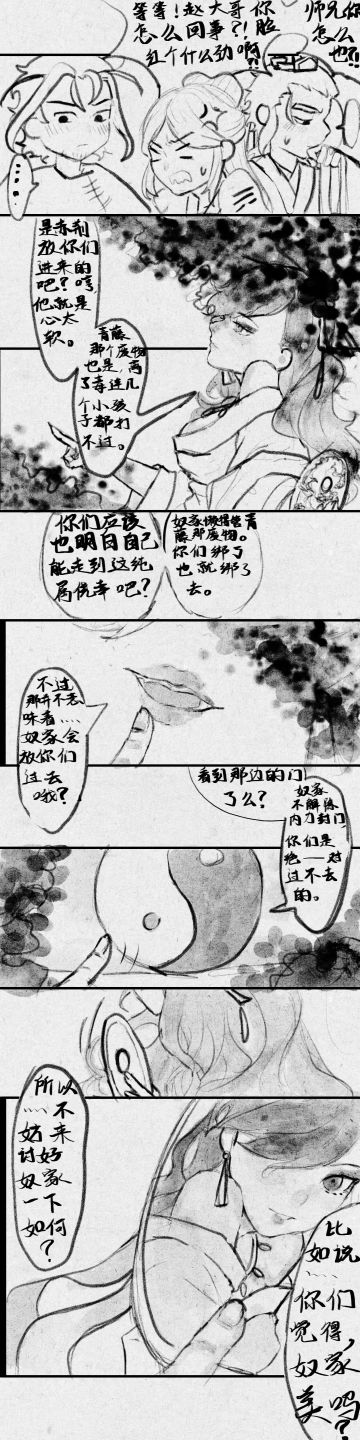 等等！赵大哥你
怎么回事？！脸
红个什么劲啊！！
师兄你
怎么
也？！
是赤利
放你们
进来的
吧？哼
他就是
心太
软。
青藤
那个废物
也是，离
了毒连几
个小孩
子都打
不过。
你们应该
也明白自己
能走到这纯
属侥幸吧？
奴家懒得管青
藤那废物。
你们绑了
也就绑了
去。
不过
那并不意
味着……
奴家会
放你们
过去
哦？
看到那边的门
了么？
奴家
不解除
内力封门
你们是
绝——对
过不去
的。
所以
……不
如来
讨好
奴家
一下
如何
？
比
如说
……
你们
觉得，
奴家
美吗
？